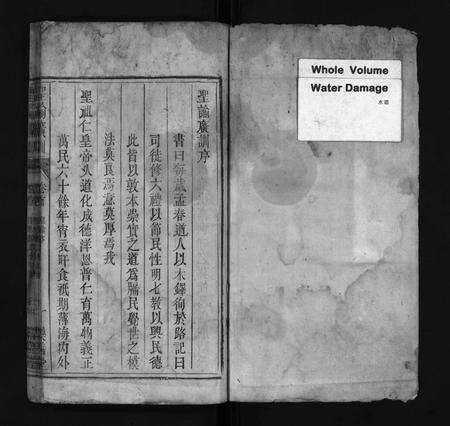 Whole Volume
Water Damage
水漬
聖諭廣訓序
書曰每歲孟春遒人以木鐸徇於路記曰
司徒修六禮以節民性明七教以興民德
此皆以敦本崇實之道為牖民覺世之模
法莫良焉意莫厚焉我
聖祖仁皇帝久道化成德洋恩普仁育萬物義正
萬民六十餘年宵衣旰食祇期薄海內外